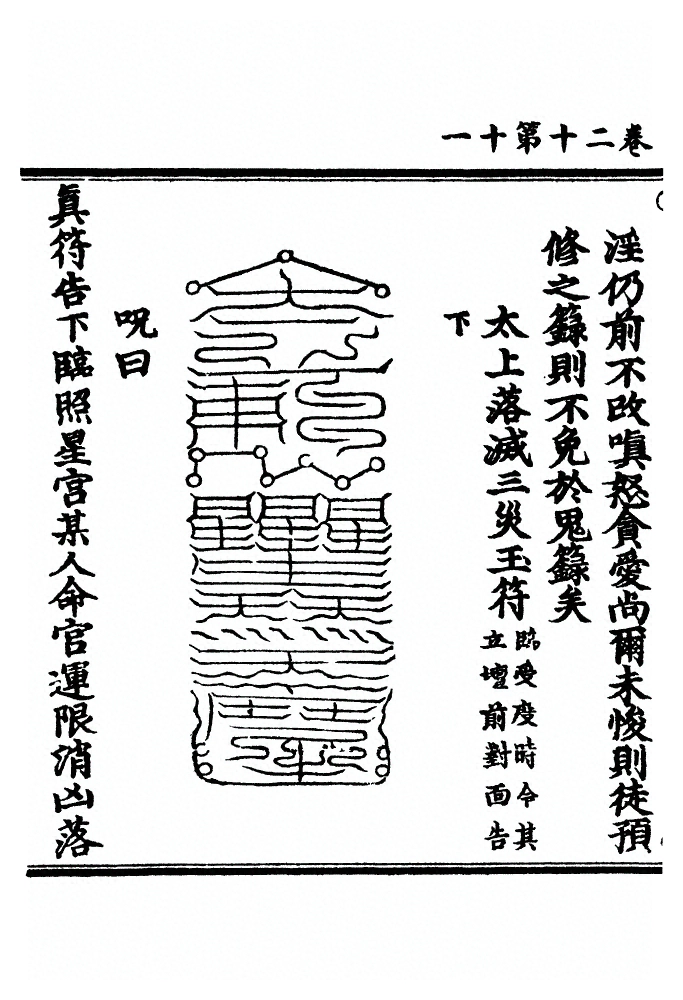 卷二十第十一
淫仍前不改嗔怒貪愛尚爾未悛則徒預
修之籙則不免於鬼籙矣
太上落滅三災玉符臨受度時令其立壇前對面告
下
呪曰
眞符告下臨照星宮某人命官運限消凶落